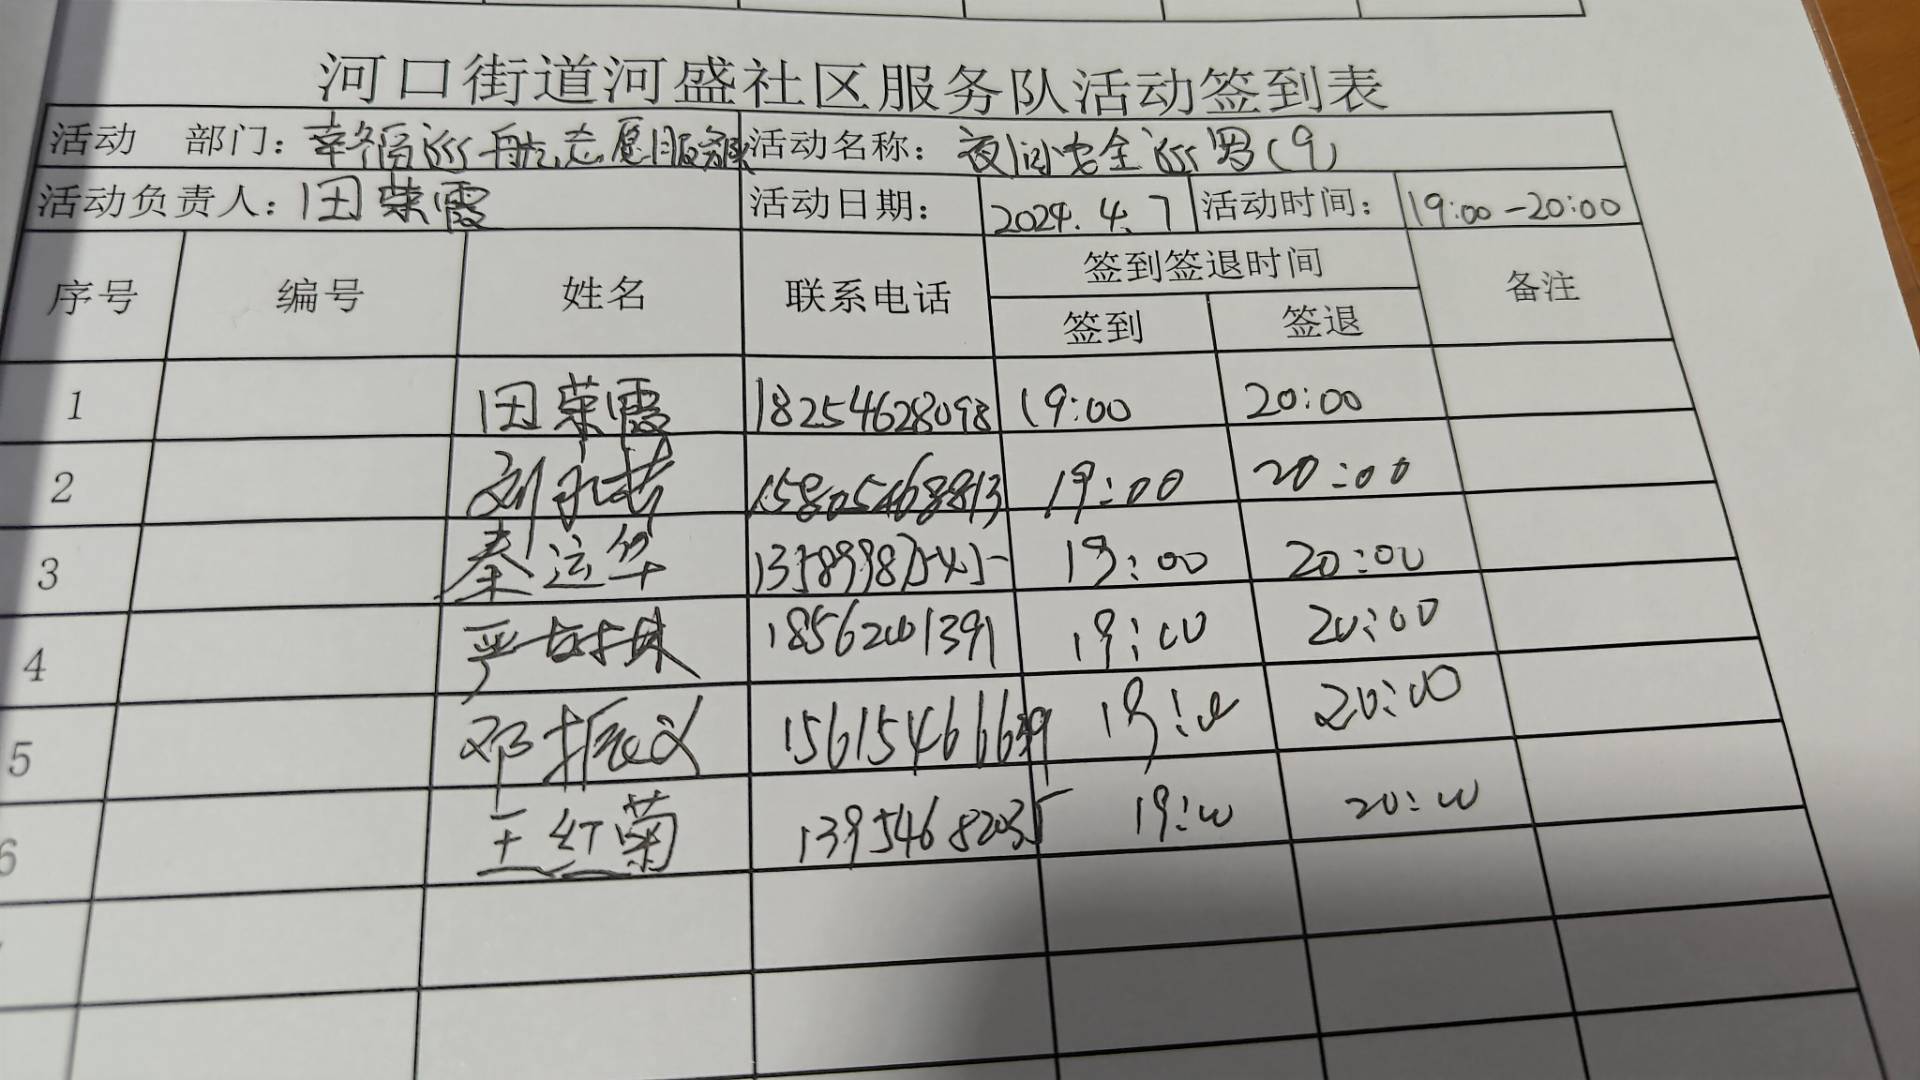 河口街道河盛社区服务队活动签到表
活动 部门：幸福巡航志愿服务队 活动名称：夜间安全巡逻(9)
活动负责人：田荣霞 活动日期： 2024.4.7 活动时间： 19:00-20:00
序号 编号 姓名 联系电话 签到签退时间 备注
签到 签退
1 田荣霞 18254628098 19:00 20:00
2 15805468813 19:00 20:00
3 秦运华 13589987545 19:00 20:00
4 18562001391 19:00 20:00
5 邓振义 19:00 20:00
6 王红菊 13954682035 19:00 20:00